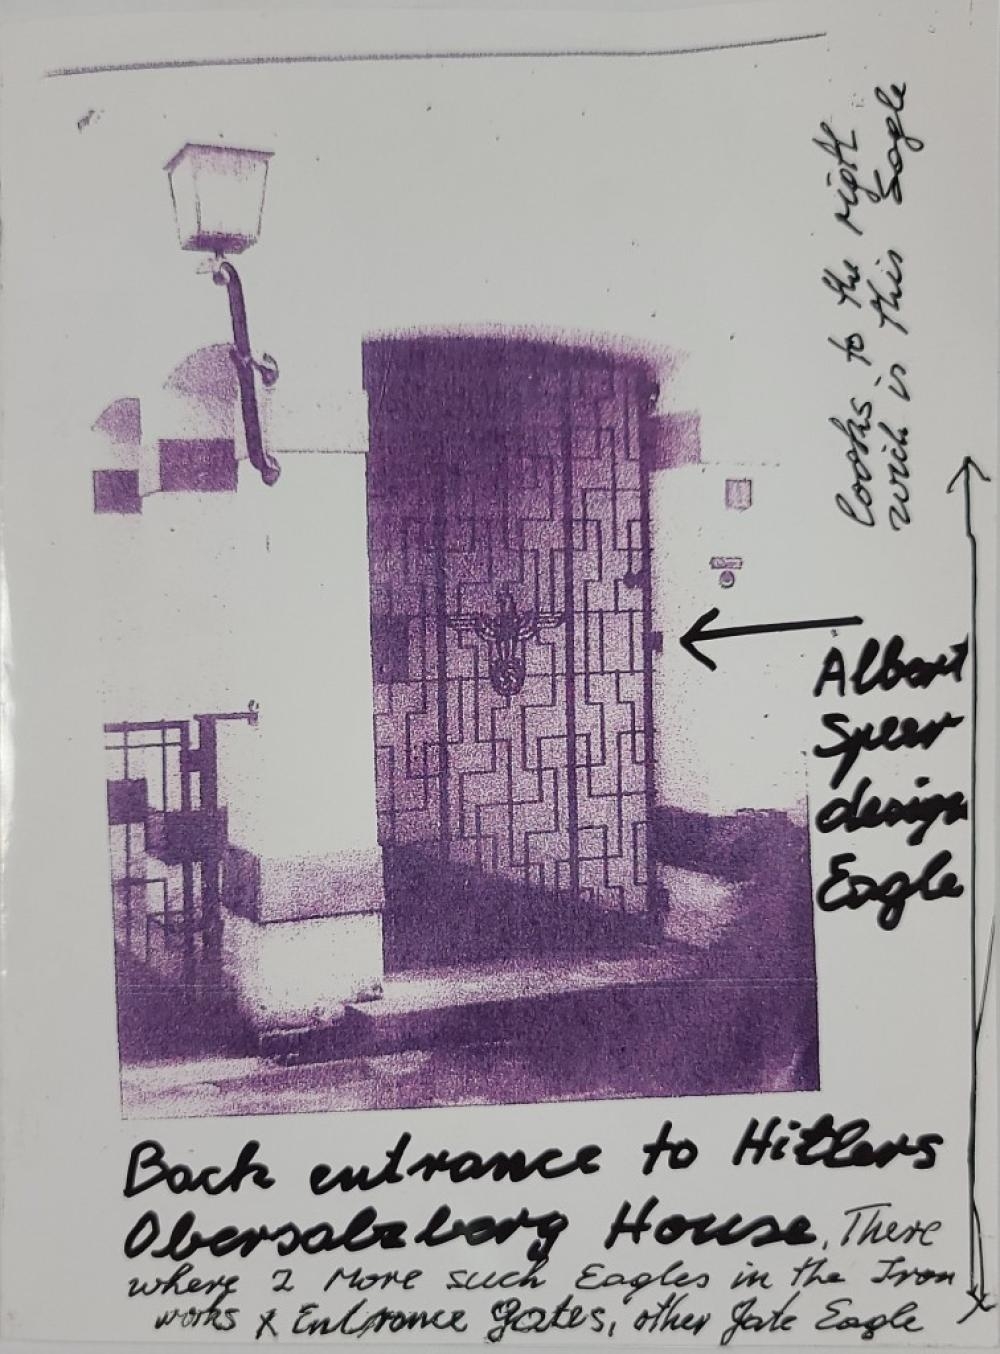 Albert
Speer
design
Eagle
Back entrance to Hitlers
Obersalzberg House. There
where 2 More such Eagles in the Iron
works x Entrance gates, other gate Eagle
looks to the right
wich is this Eagle